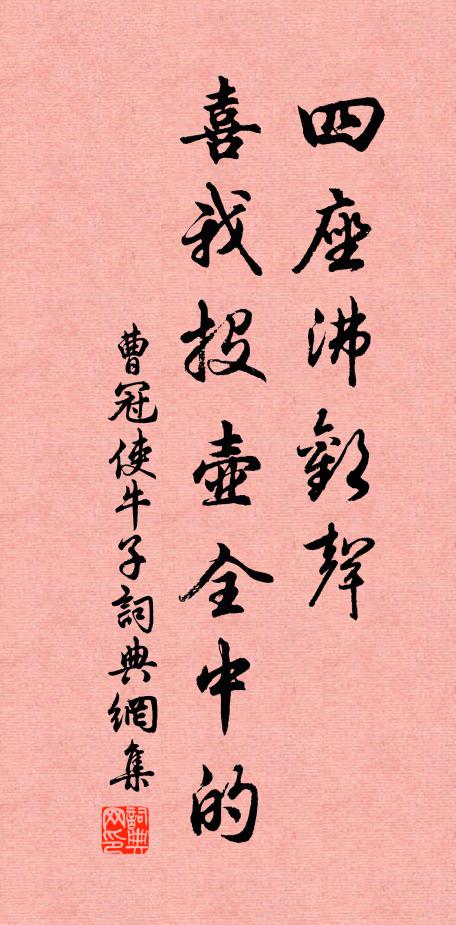 四座沸歡聲
喜我投壺全中的
曹冠使牛子詞典網集
詞典网印